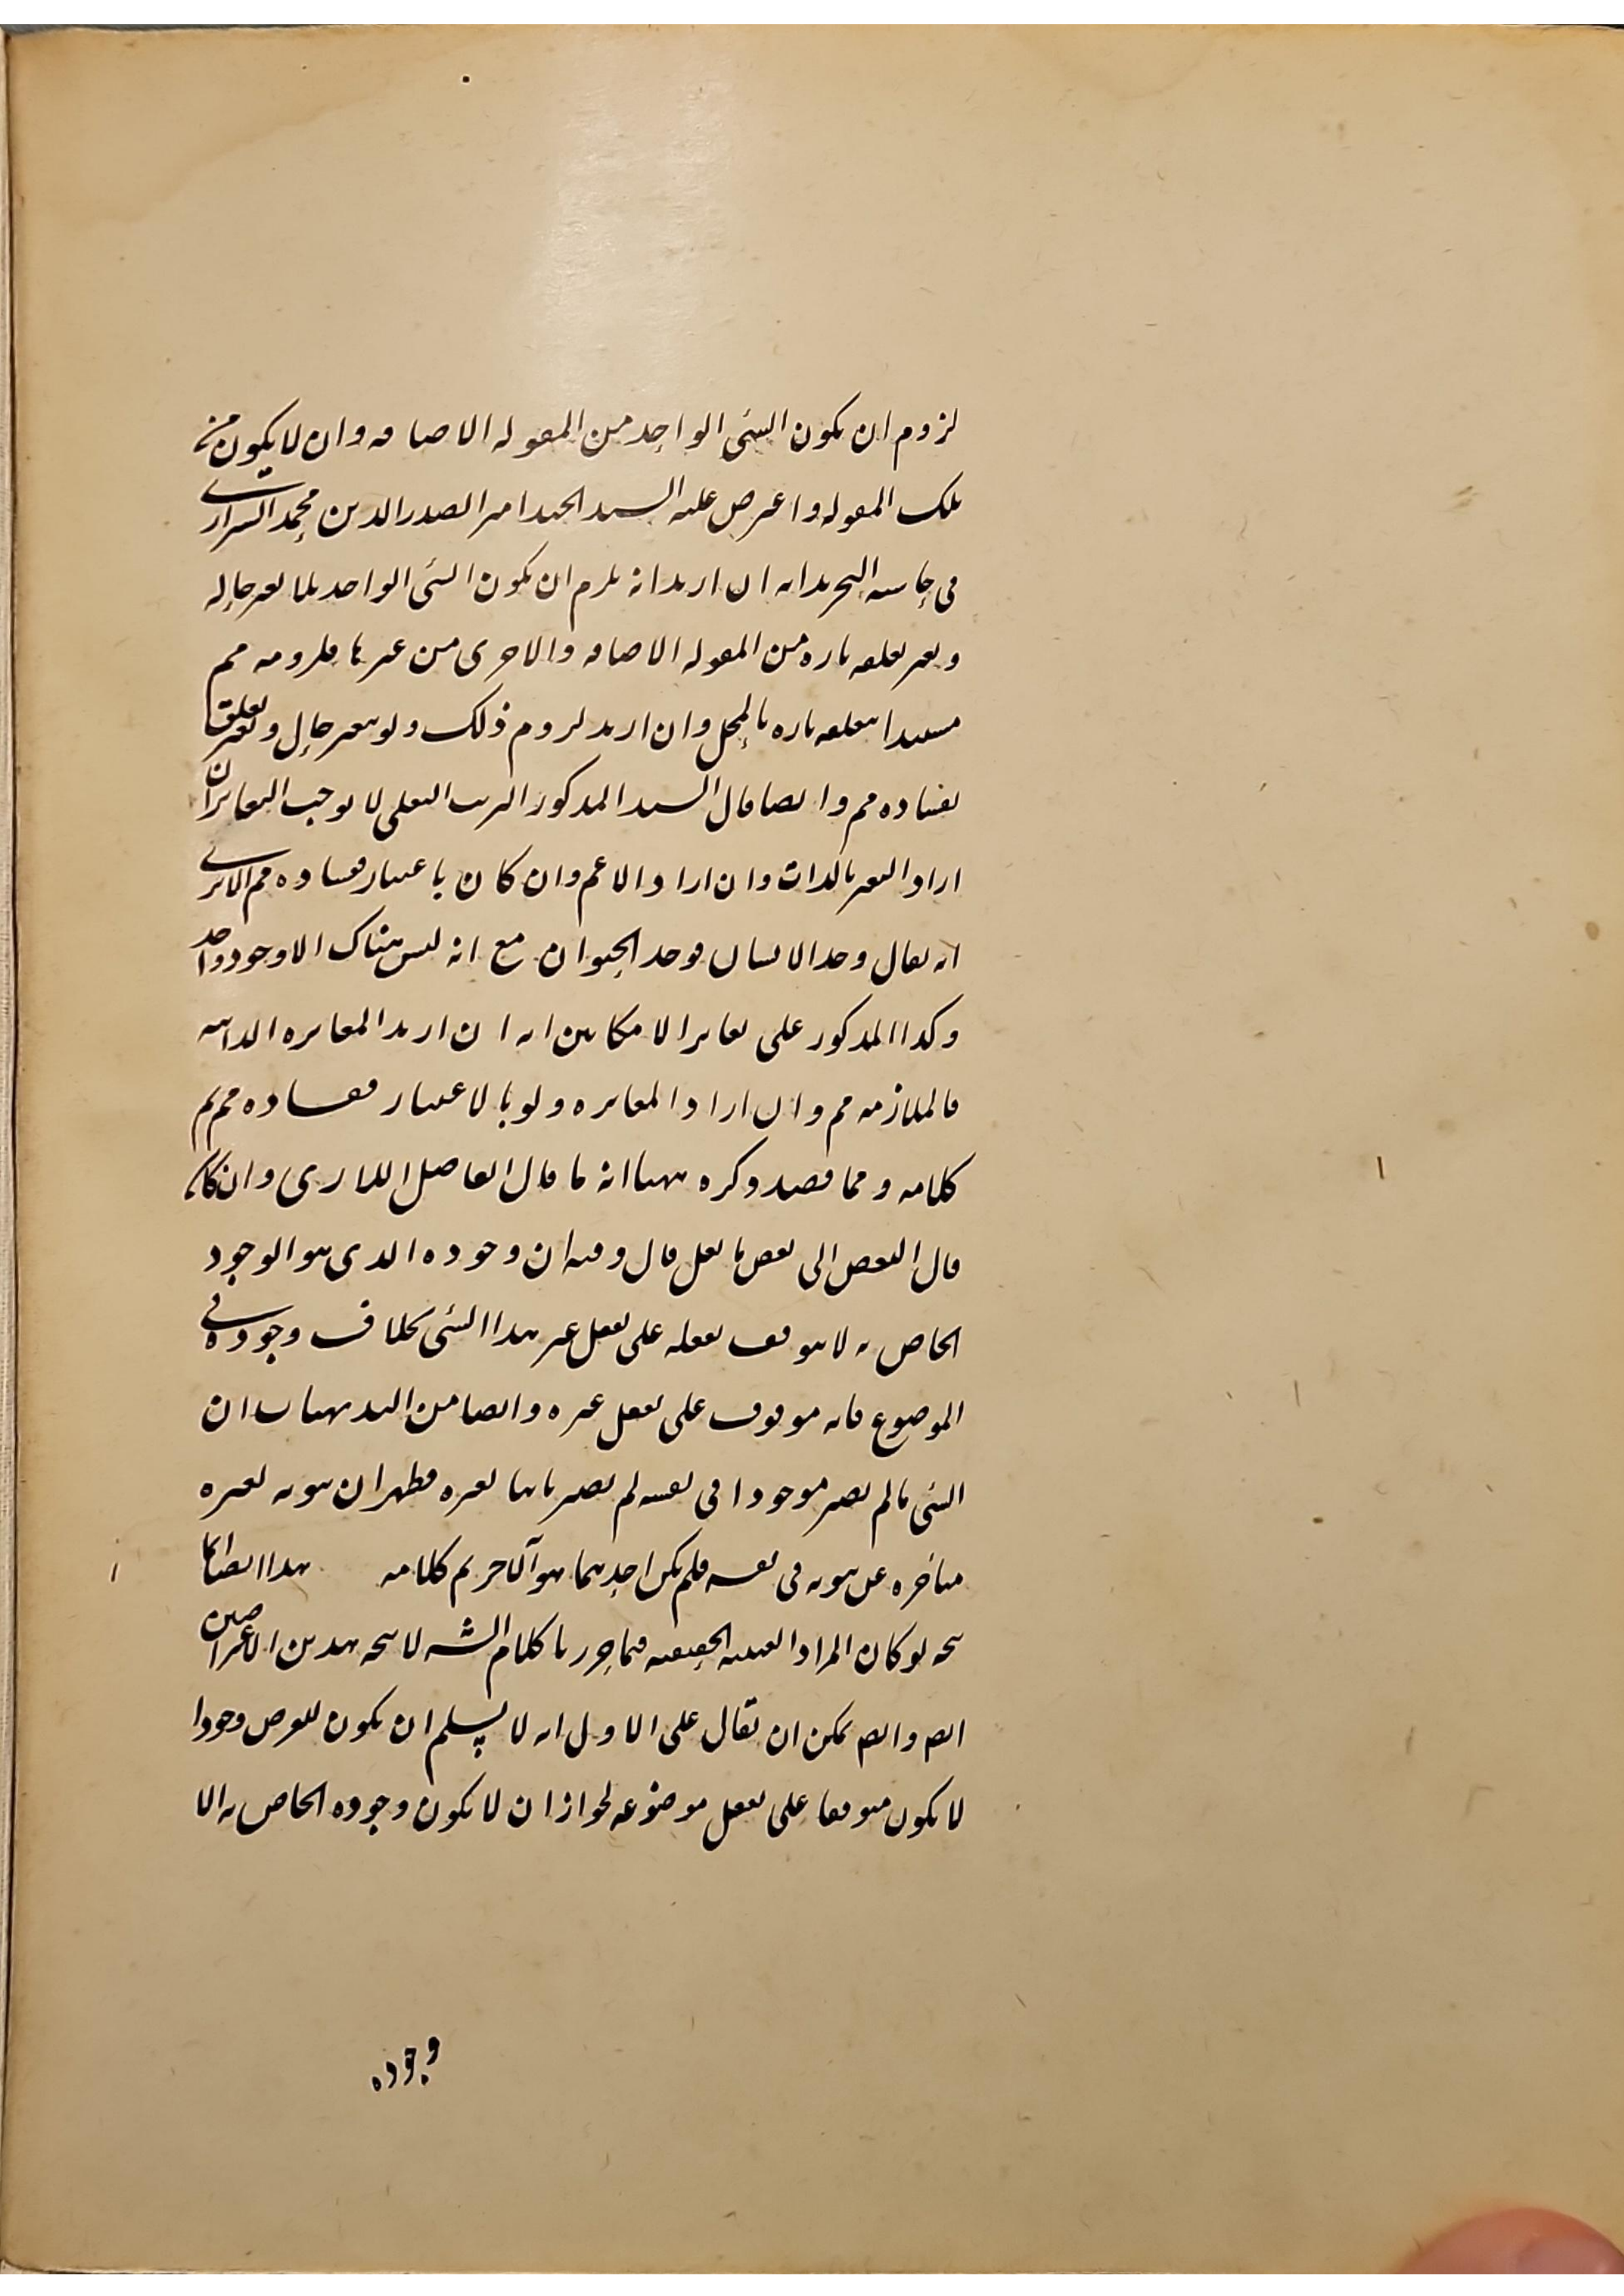 لزوم ان يكون الشئ الواحد من المقوله الاضافه وان لا يكون من
تلك المقوله واعترض عليه السيد الجيد امير الصدر الدين محمد الشيرازى
فى حاشيه التجريد انه ان اريد انه يلزم ان يكون الشئ الواحد بلا تغير حاله
وتغير تعلقه تاره من المقوله الاضافه والاخرى من غيرها فلزومه مم
مستندا بتعلقه تاره بالمحل وان اريد لزوم ذلك ولو بتغير حال وتغير تعلق
ففساده مم وايضا قال السيد المذكور الترتب العقلى لا يوجب التغاير ان
اراد التغير بالذات وان اراد الاعم وان كان باعتبار ففساده مم الا ترى
انه يقال وجد الانسان فوجد الحيوان مع انه ليس هناك الا وجود واحد
وكذا المذكور على تغاير الامكانين انه ان اريد المغايره الذاتيه
فالملازمه مم وان اراد المغايره ولو بالاعتبار ففساده مم تم
كلامه ومما قصد ذكره ههنا انه ما قال الفاضل اللارى وان كان
قال البعض الى بعض ما نقل قال وفيه ان وجوده الذى هو الوجود
الخاص به لا يتوقف تعقله على تعقل غير هذا الشئ بخلاف وجوده فى
الموضوع فانه موقوف على تعقل غيره وايضا من البديهيات ان
الشئ ما لم يصر موجودا فى نفسه لم يصر ثابتا لغيره فظهر ان ثبوته لغيره
متاخره عن ثبوته فى نفسه فلم يكن احدهما هو الآخر تم كلامه هذا ايضا انما
يتجه لو كان المراد العينيه الحقيقيه فيما حررنا كلام الشه لا يتجه هذين الاعتراضين
ايضا وايضا يمكن ان يقال على الاول انه لا يسلم ان يكون للعرض وجودا
لا يكون متوقفا على تعقل موضوعه لجواز ان لا يكون وجوده الخاص به الا
وجوده